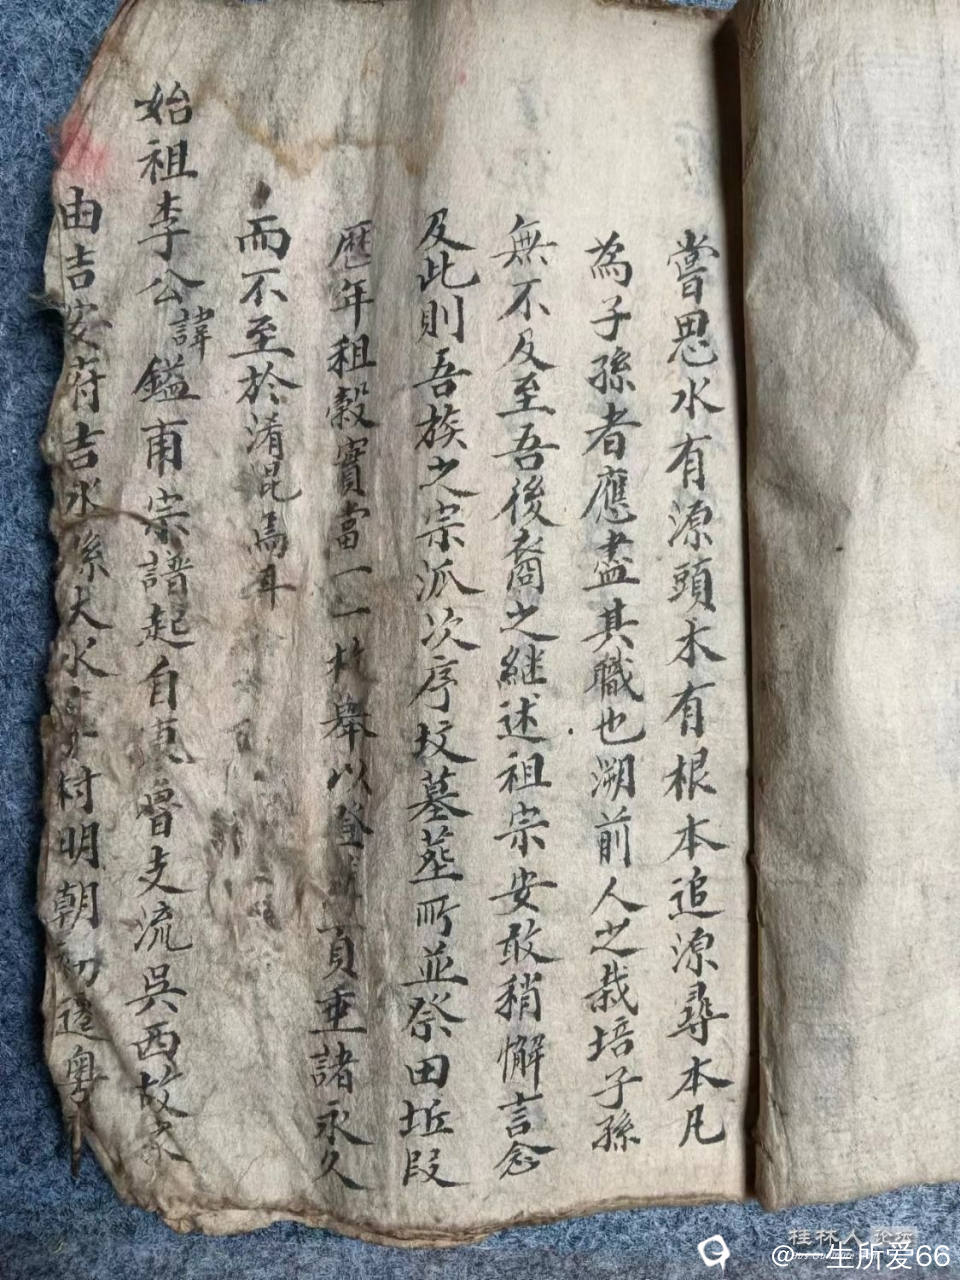 嘗思水有源頭木有根本追源尋本凡
為子孫者應盡其職也溯前人之栽培子孫
無不及至吾後裔之継述祖宗安敢稍懈言念
及此則吾族之宗派次序坟墓塟所並祭田坵段
歷年租穀實當一一枚舉以登頁垂諸永久
而不至於淆混焉耳
始祖李公諱鎰甫宗譜起自曾支流吳西故
由吉安府吉水係大水村明朝初遷粵
桂林人论坛
@一生所爱66